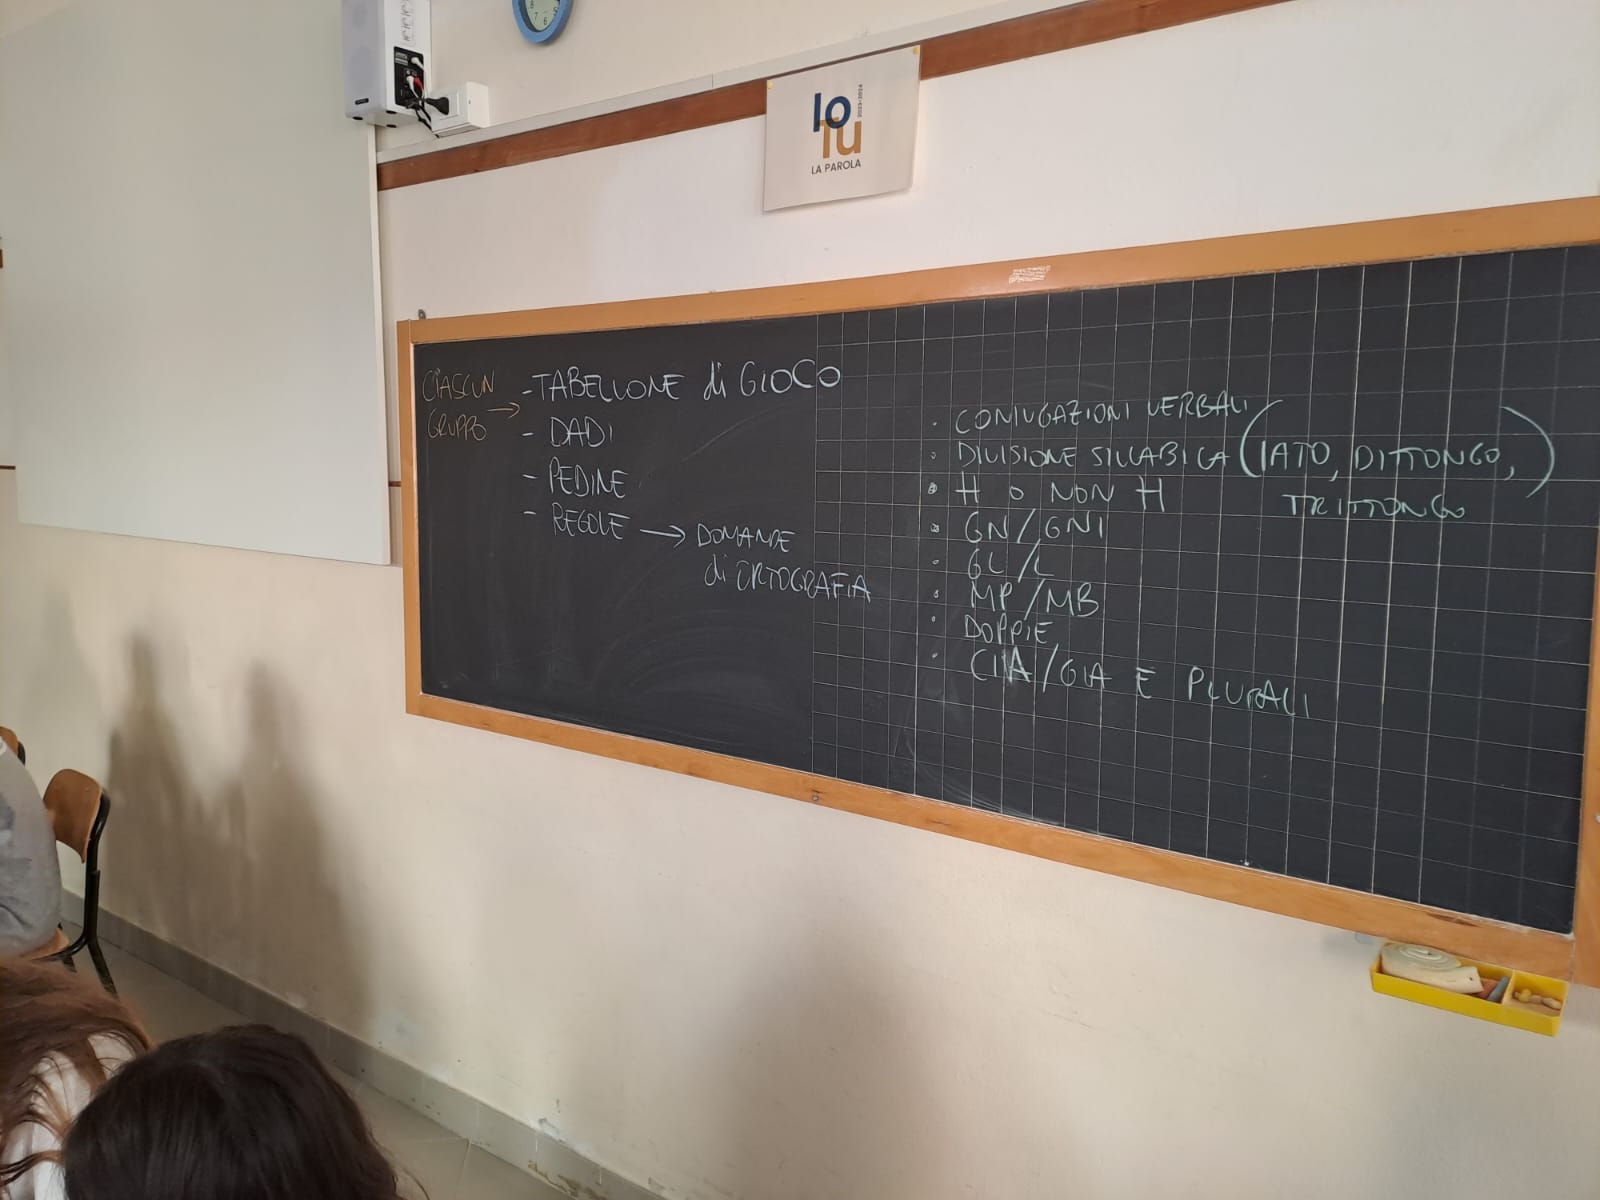 Io
Tu
2023-2024
LA PAROLA
CIASCUN
GRUPPO →
- TABELLONE di GIOCO
- DADI
- PEDINE
- REGOLE → DOMANDE
di ORTOGRAFIA
· CONIUGAZIONI VERBALI
· DIVISIONE SILLABICA (IATO, DITTONGO,
TRITTONGO)
· H O NON H
· GN/GNI
· GL/L
· MP/MB
· DOPPIE
· CIA/GIA E PLURALI